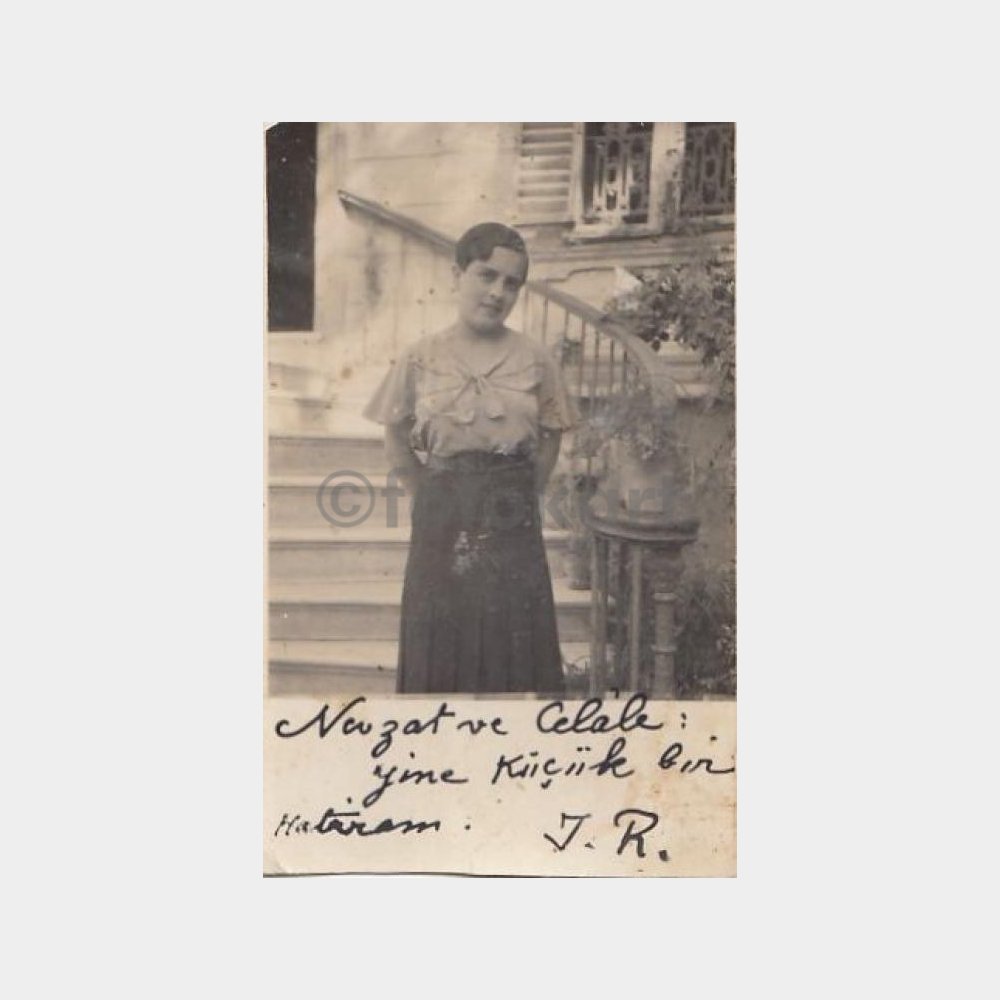 ©fotokart
Nevzat ve Celâle:
yine Küçük bir
Hatıram. J. R.